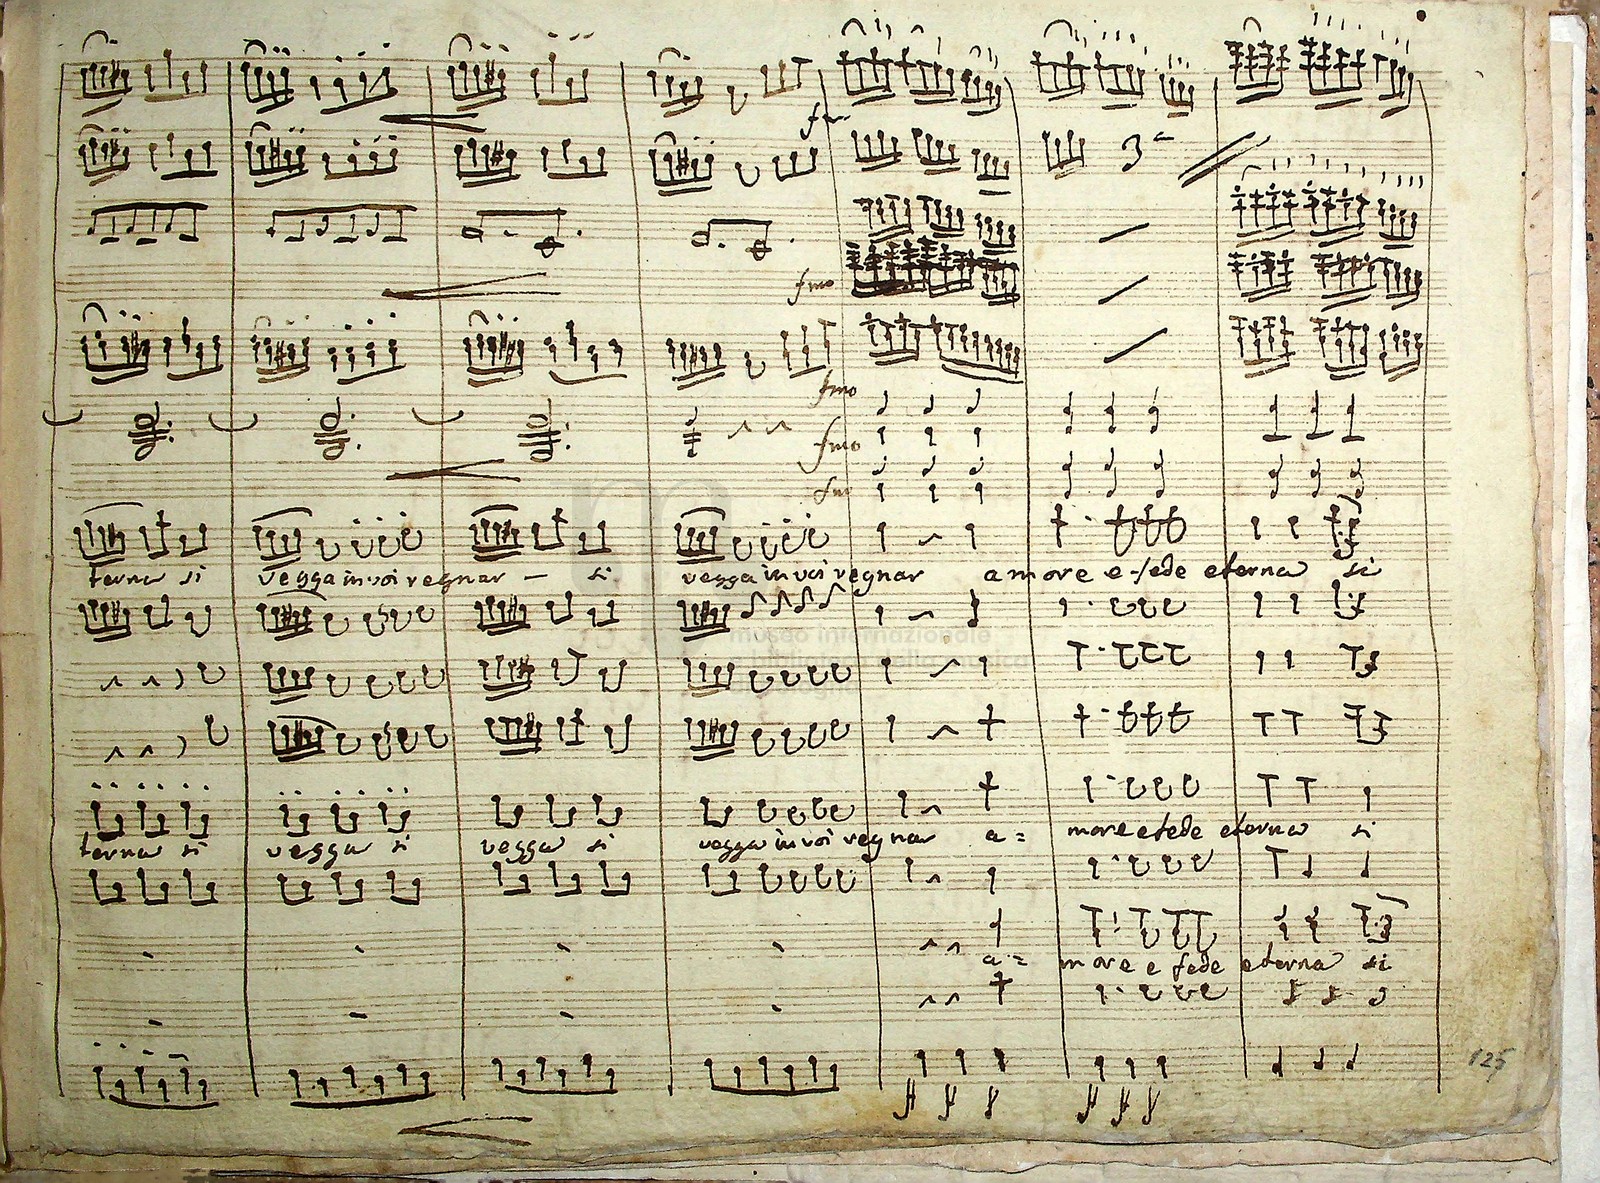 fmo
fmo
fmo
fmo
terna si vegga in voi regnar — si vegga in voi regnar amore e fede eterna si
museo internazionale
terna si vegga si vegga si vegga in voi regnar a= more e fede eterna si
a= more e fede eterna si
125